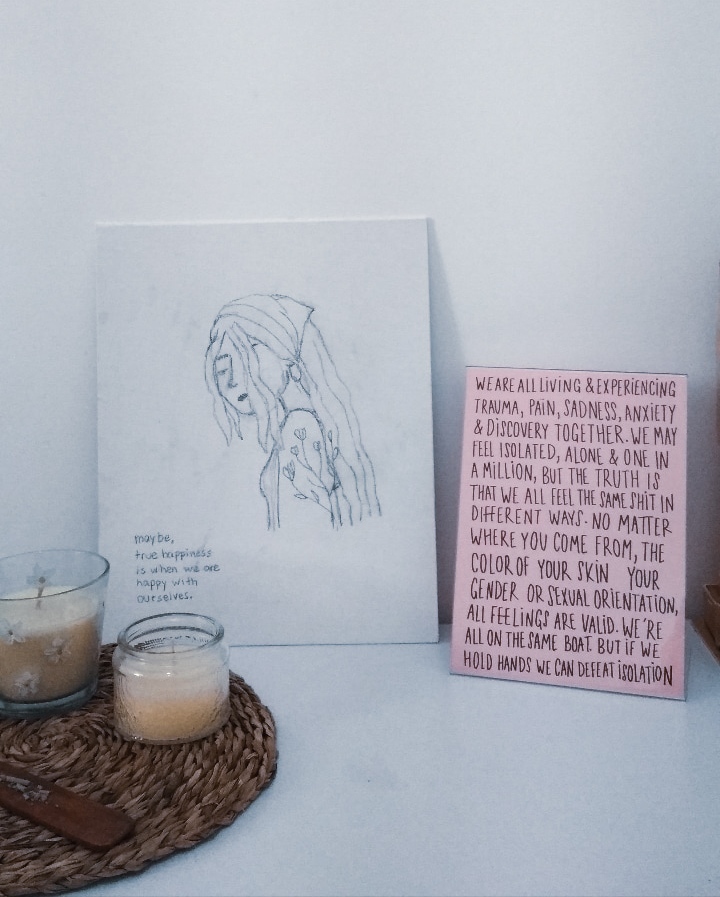 maybe,
true happiness
is when we are
happy with
ourselves.
WE ARE ALL LIVING & EXPERIENCING
TRAUMA, PAIN, SADNESS, ANXIETY
& DISCOVERY TOGETHER. WE MAY
FEEL ISOLATED, ALONE & ONE IN
A MILLION, BUT THE TRUTH IS
THAT WE ALL FEEL THE SAME SHIT IN
DIFFERENT WAYS. NO MATTER
WHERE YOU COME FROM, THE
COLOR OF YOUR SKIN YOUR
GENDER OR SEXUAL ORIENTATION,
ALL FEELINGS ARE VALID. WE'RE
ALL ON THE SAME BOAT. BUT IF WE
HOLD HANDS WE CAN DEFEAT ISOLATION